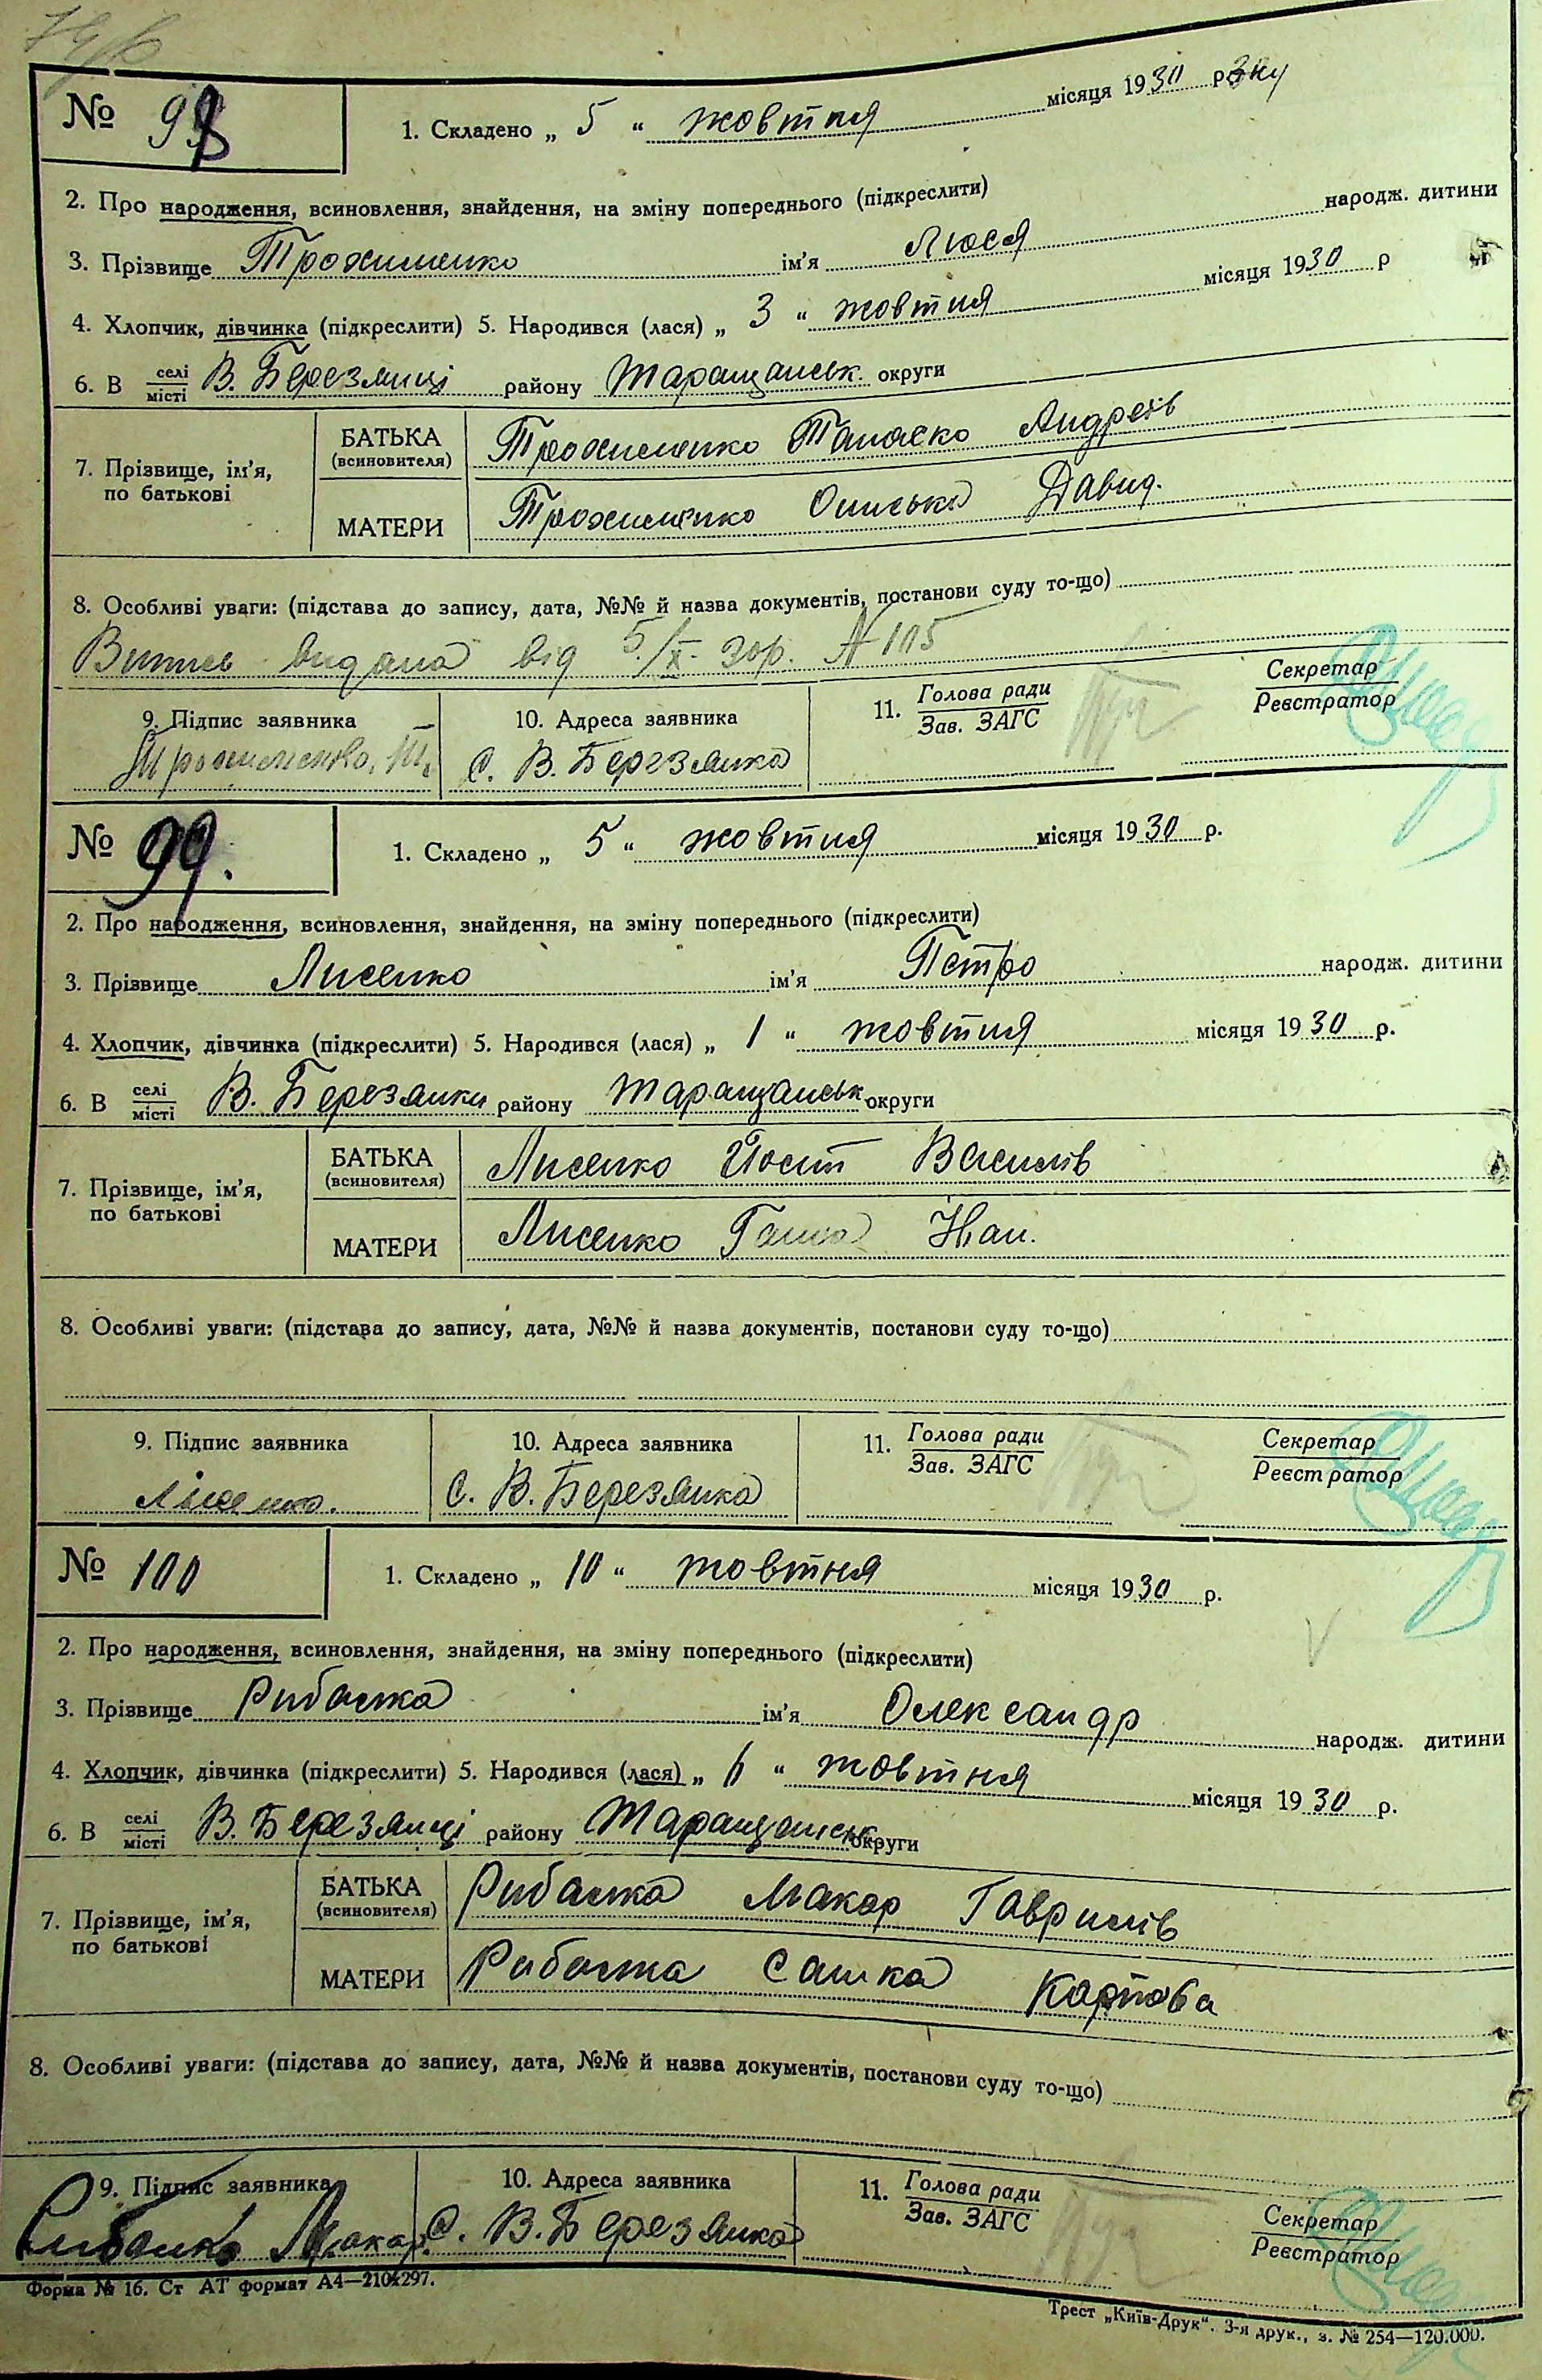 № 98
1. Складено „ 5 “ жовтня місяця 1930 року
2. Про народження, всиновлення, знайдення, на зміну попереднього (підкреслити)
3. Прізвище Трохименко ім'я Люся народж. дитини
4. Хлопчик, дівчинка (підкреслити) 5. Народився (лася) „ 3 “ жовтня місяця 1930 р
6. В селі/місті В. Березянці району Таращанськ. округи
7. Прізвище, ім'я, по батькові
БАТЬКА (всиновителя) Трохименко Танаско Андреів
МАТЕРИ Трохименко Ониська Давид.
8. Особливі уваги: (підстава до запису, дата, №№ й назва документів, постанови суду то-що)
Витяг видана від 5/X. 30р. N 115
9. Підпис заявника 10. Адреса заявника 11. Голова ради/Зав. ЗАГС Секретар/Реєстратор
Трохименко, Т. С. В. Березянка
№ 99.
1. Складено „ 5 “ жовтня місяця 1930 р.
2. Про народження, всиновлення, знайдення, на зміну попереднього (підкреслити)
3. Прізвище Лисенко ім'я Петро народж. дитини
4. Хлопчик, дівчинка (підкреслити) 5. Народився (лася) „ 1 “ жовтня місяця 1930 р.
6. В селі/місті В. Березянки району Таращанськ округи
7. Прізвище, ім'я, по батькові
БАТЬКА (всиновителя) Лисенко Йосип Василів
МАТЕРИ Лисенко Ганна Іван.
8. Особливі уваги: (підстава до запису, дата, №№ й назва документів, постанови суду то-що)
9. Підпис заявника 10. Адреса заявника 11. Голова ради/Зав. ЗАГС Секретар/Реєстратор
Лисенко. С. В. Березянка
№ 100
1. Складено „ 10 “ жовтня місяця 1930 р.
2. Про народження, всиновлення, знайдення, на зміну попереднього (підкреслити)
3. Прізвище Рибалка ім'я Олександр народж. дитини
4. Хлопчик, дівчинка (підкреслити) 5. Народився (лася) „ 6 “ жовтня місяця 1930 р.
6. В селі/місті В. Березянці району Таращанськ округи
7. Прізвище, ім'я, по батькові
БАТЬКА (всиновителя) Рибалка Макар Гаврилів
МАТЕРИ Рибалка Сашка Карпова
8. Особливі уваги: (підстава до запису, дата, №№ й назва документів, постанови суду то-що)
9. Підпис заявника 10. Адреса заявника 11. Голова ради/Зав. ЗАГС Секретар/Реєстратор
Рибалка Макар. С. В. Березянка
Форма № 16. Ст АТ формат А4—210×297.
Трест „Київ-Друк“. 3-я друк., з. № 254—120.000.